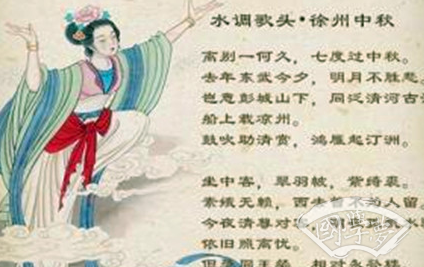 水调歌头•徐州中秋
离别一何久，七度过中秋。
去年东武今夕，明月不胜愁。
岂意彭城山下，同泛清河古
船上载凉州。
鼓吹助清赏，鸿雁起汀洲。
坐中客，翠羽帔，紫绮裘。
素娥无赖，西去 不为人留。
今夜清尊对 水
依旧照离忧。
但恐同王粲，相对永登楼
国学梦